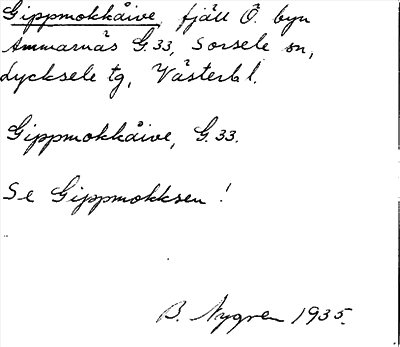 Gippmokkåive, fjäll Ö. byn
Ammarnäs G. 33, Sorsele sn,
Lycksele tg, Västerb l.
Gippmokkåive, G. 33.
Se Gippmokksen !
B. Nygren 1935.